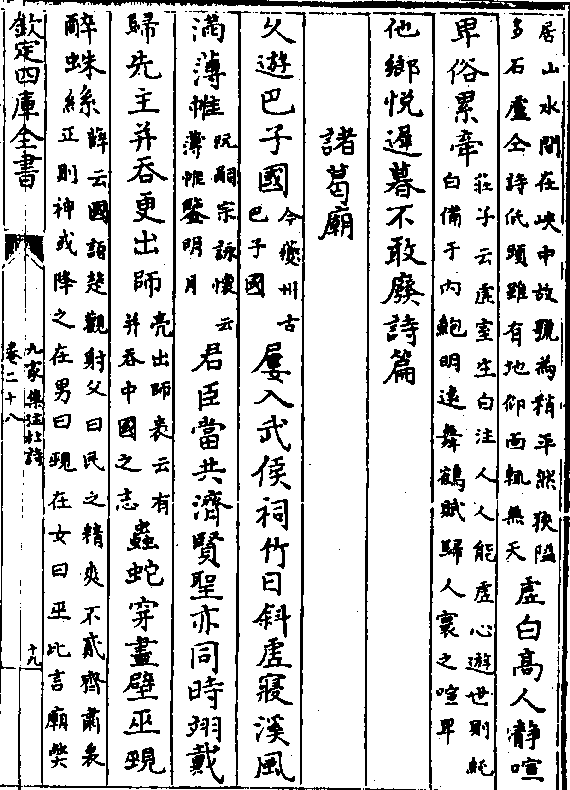 居山水間在峽中故號為稍平然狹隘
多石盧仝詩低頭雖有地仰面輒無天
虛白高人靜喧
卑俗累牽
莊子云虛室生白注人人能虛心遊世則純
白備于内鮑明遠舞鶴賦歸人寰之喧卑
他鄉悦遲暮不敢廢詩篇
諸葛廟
久遊巴子國
今夔州古
巴子國
屢入武侯祠竹日斜虛寢溪風
滿薄帷
阮嗣宗詠懷云
薄帷鑒明月
君臣當共濟賢聖亦同時翊戴
歸先主并吞更出師
亮出師表云有
并吞中國之志
蟲蛇穿畫壁巫覡
醉蛛絲
薛云國語楚觀射父曰民之精爽不貳齊肅衷
正則神或降之在男曰覡在女曰巫此言廟弊
欽定四庫全書
九家集注杜詩
卷二十八
十九